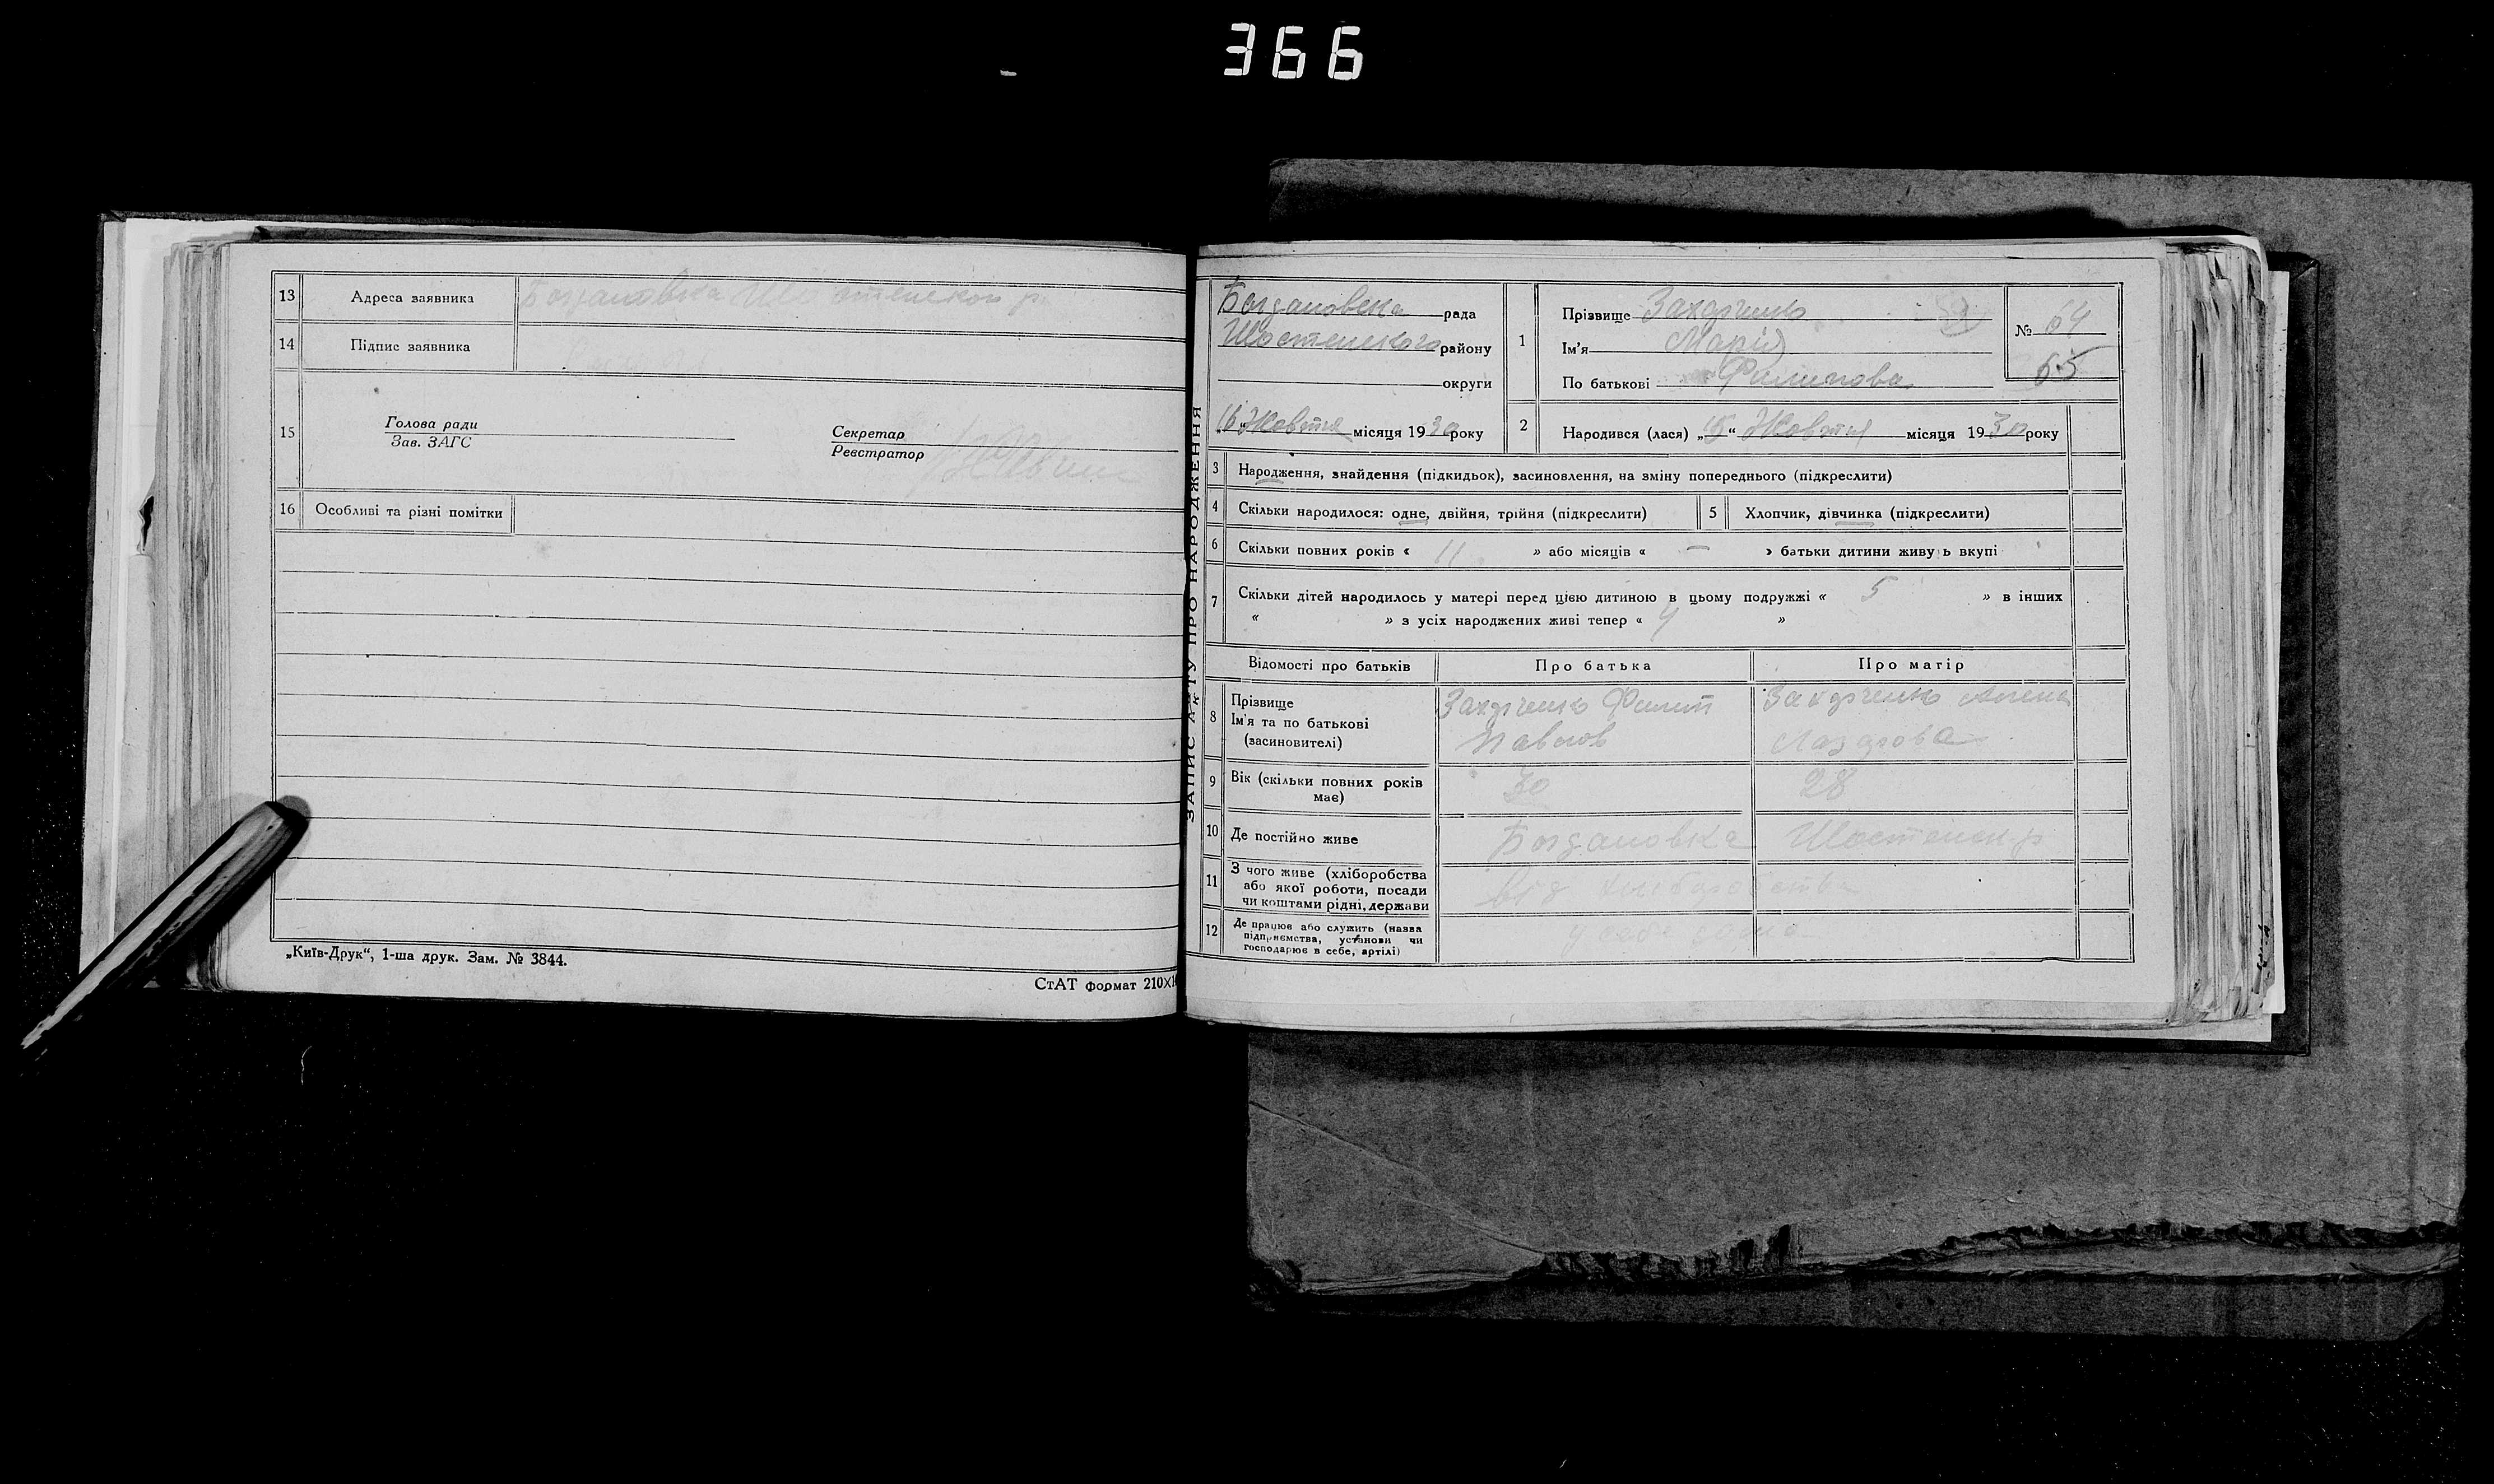 366
13 Адреса заявника Богдановка Шостенског р
14 Підпис заявника
15 Голова ради
Зав. ЗАГС
Секретар
Реєстратор
16 Особливі та різні помітки
„Київ-Друк“, 1-ша друк. Зам. № 3844.
СтАТ формат 210×1
ЗАПИС АКТУ ПРО НАРОДЖЕННЯ
Богдановска рада
Шостенского району
округи
„16“ Жовтня місяця 1930 року
1 Прізвище Захарченко
Ім'я Марія
По батькові Филипова
№ 64
65
2 Народився (лася) „15“ Жовтня місяця 1930 року
3 Народження, знайдення (підкидьок), засиновлення, на зміну попереднього (підкреслити)
4 Скільки народилося: одне, двійня, трійня (підкреслити)
5 Хлопчик, дівчинка (підкреслити)
6 Скільки повних років « 11 » або місяців « — » батьки дитини живуь вкупі
7 Скільки дітей народилось у матері перед цією дитиною в цьому подружжі « 5 » в інших
« » з усіх народжених живі тепер « 4 »
Відомості про батьків Про батька Про матір
8 Прізвище
Ім'я та по батькові
(засиновителі)
Захарченко Филип
Павлов
Захарченко
Лазарова
9 Вік (скільки повних років
має)
30
28
10 Де постійно живе Богдановка Шостенск р
11 З чого живе (хліборобства
або якої роботи, посади
чи коштами рідні, держави
від хліборобства
12 Де працює або служить (назва
підприємства, установи чи
господарює в себе, артілі)